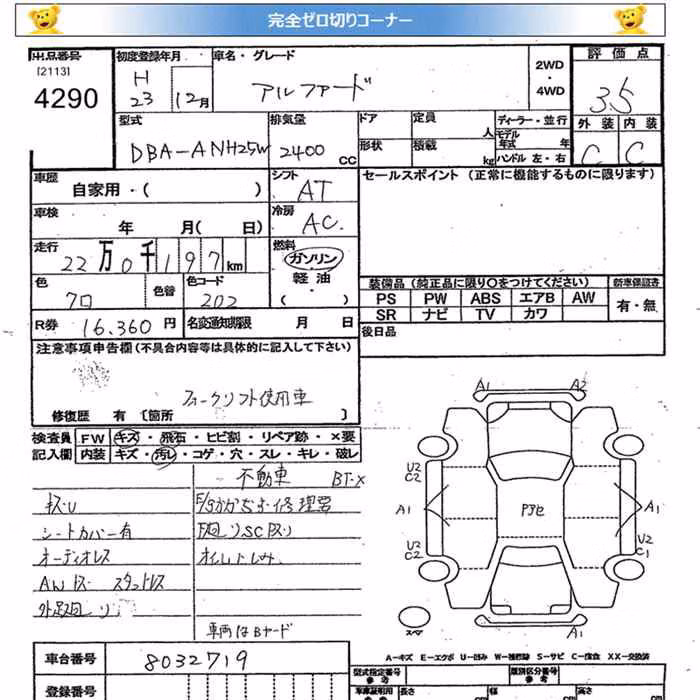 完全ゼロ切りコーナー
出品番号 初度登録年月 車名・グレード 2WD・4WD 評価点
[2113] H
4290 23 12月 アルファード 3.5
型式 排気量 ドア 定員 人 ディーラー・並行 外装 内装
DBA-ANH25W 2400 CC 形状 積載 kg モデル年式 年 ハンドル 左・右 C C
車歴 自家用・( ) シフト AT セールスポイント (正常に機能するものに限ります)
車検 年 月( 日) 冷房 AC
走行 22万0千197km 燃料 ガソリン 軽油・( )
色 クロ 色替 色コード 202 装備品 (純正品に限り○をつけてください) 新車保証書
PS PW ABS エアB AW 有・無
R券 16,360円 名変通知期限 月 日 SR ナビ TV カワ
注意事項申告欄(不具合内容等は具体的に記入して下さい) 後日品
フォークリフト使用車
修復歴 有 〔箇所 〕
検査員 FW キズ・飛石・ヒビ割・リペア跡・×要
記入欄 内装 キズ・汚レ・コゲ・穴・スレ・キレ・破レ
不動車 BT-X
キズ・U
シートカバー有
オーディオレス
AWキズ スタットレス
車両はBヤード
A1 A2
U2 U2
C2 C2
A1 Pアセ A1
U2 U2
C2 C1
スペア A1
A=キズ E=エクボ U=凹み W=補修跡 S=サビ C=腐食 XX=交換済
車台番号 8032719 型式指定番号 参考 類別区分番号 参考
登録番号 長さ 幅 高さ